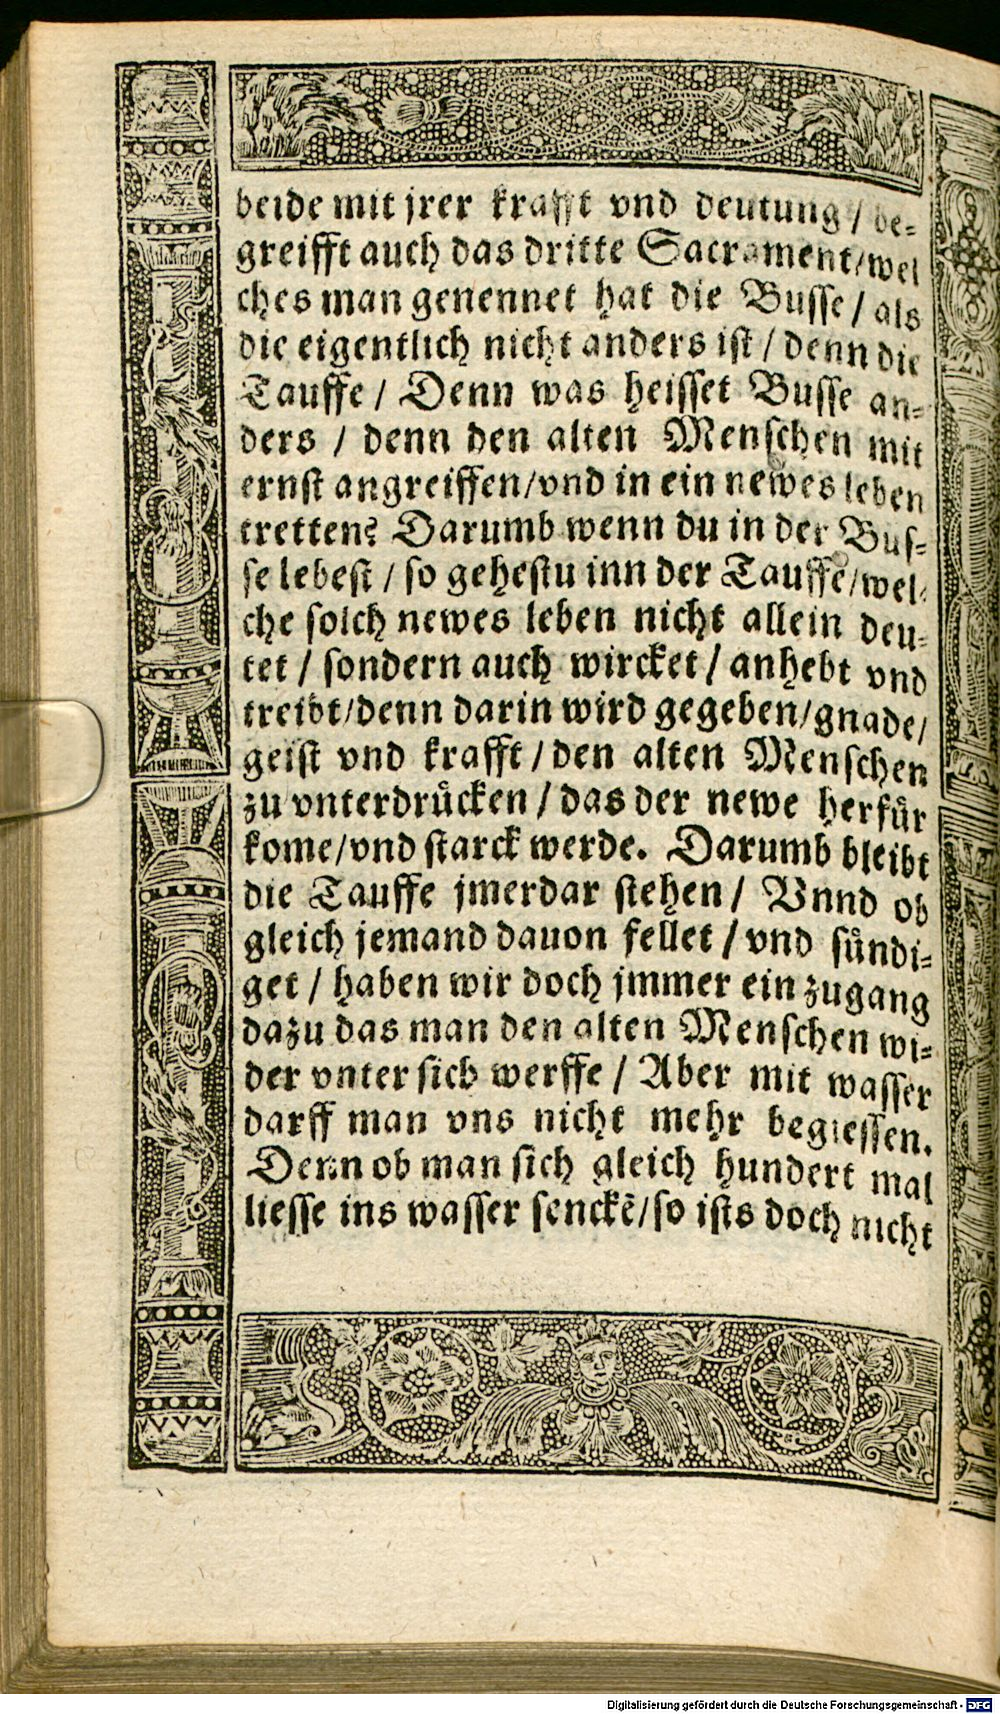 beide mit jrer krafft vnd deutung / be-
greifft auch das dritte Sacrament / wel
ches man genennet hat die Busse / als
die eigentlich nicht anders ist / denn die
Tauffe / Denn was heisset Busse an-
ders / denn den alten Menschen mit
ernst angreiffen / vnd in ein newes leben
tretten? Darumb wenn du in der Bus-
se lebest / so gehestu inn der Tauffe / wel-
che solch newes leben nicht allein deu-
tet / sondern auch wircket / anhebt vnd
treibt / denn darin wird gegeben / gnade /
geist vnd krafft / den alten Menschen
zu vnterdruͤcken / das der newe herfuͤr
kome / vnd starck werde. Darumb bleibt
die Tauffe jmerdar stehen / Vnnd ob
gleich jemand dauon fellet / vnd suͤndi-
get / haben wir doch jmmer ein zugang
dazu das man den alten Menschen wi-
der vnter sich werffe / Aber mit wasser
darff man vns nicht mehr begiessen.
Denn ob man sich gleich hundert mal
liesse ins wasser senckē / so ists doch nicht
Digitalisierung gefördert durch die Deutsche Forschungsgemeinschaft - DFG